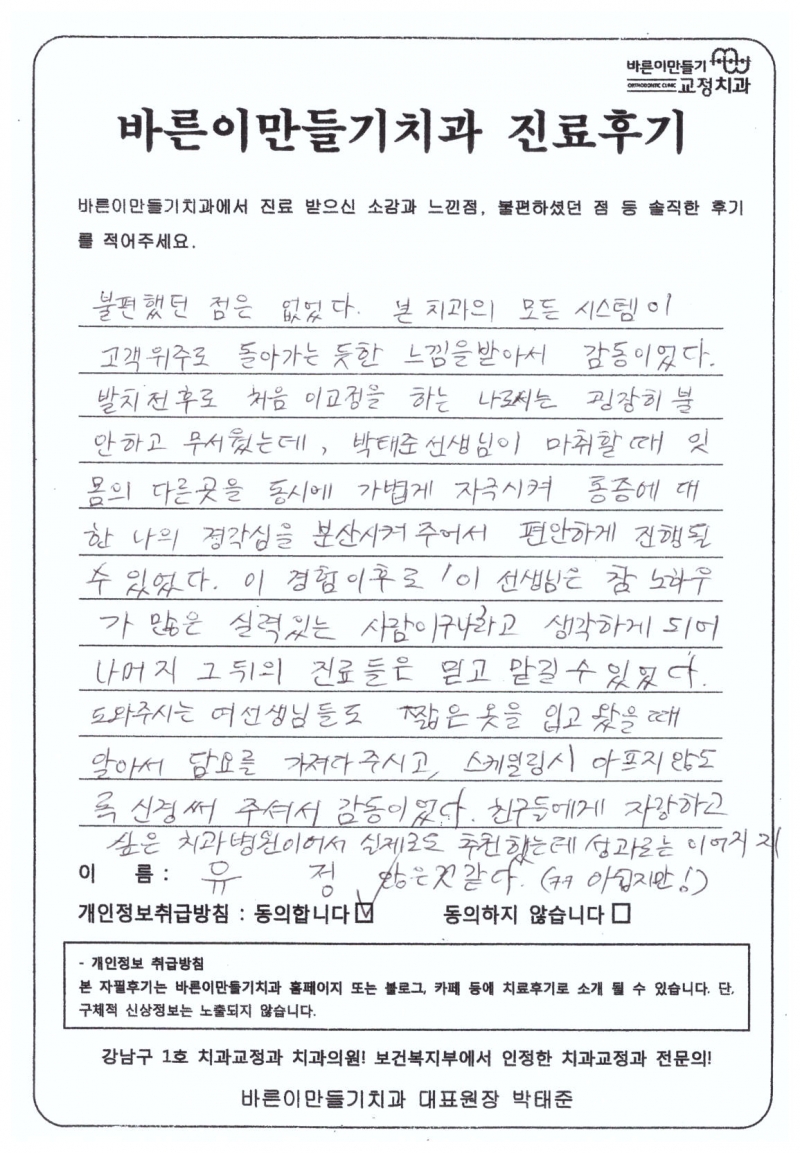 바른이만들기
ORTHODONTIC CLINIC 교정치과
바른이만들기치과 진료후기
바른이만들기치과에서 진료 받으신 소감과 느낀점, 불편하셨던 점 등 솔직한 후기
를 적어주세요.
불편했던 점은 없었다. 본 치과의 모든 시스템이
고객위주로 돌아가는 듯한 느낌을받아서 감동이었다.
발치전후로 처음 이교정을 하는 나로써는 굉장히 불
안하고 무서웠는데, 박태준선생님이 마취할때 잇
몸의 다른곳을 동시에 가볍게 자극시켜 통증에 대
한 나의 경각심을 분산시켜 주어서 편안하게 진행될
수 있었다. 이 경험이후로 '이 선생님은 참 노하우
가 많은 실력있는 사람이구나'라고 생각하게 되어
나머지 그 뒤의 진료들은 믿고 맡길 수 있었다.
도와주시는 여선생님들도 짧은 옷을 입고 왔을때
알아서 담요를 가져다주시고, 스케일링시 아프지않도
록 신경써 주셔서 감동이었다. 친구들에게 자랑하고
싶은 치과병원이어서 실제로도 추천했는데 성과로는 이어지지
이 름 : 유 정 않은것 같다. (ㅋㅋ 아쉽지만!)
개인정보취급방침 : 동의합니다 ☑ 동의하지 않습니다 □
- 개인정보 취급방침
본 자필후기는 바른이만들기치과 홈페이지 또는 블로그, 카페 등에 치료후기로 소개 될 수 있습니다. 단,
구체적 신상정보는 노출되지 않습니다.
강남구 1호 치과교정과 치과의원! 보건복지부에서 인정한 치과교정과 전문의!
바른이만들기치과 대표원장 박태준